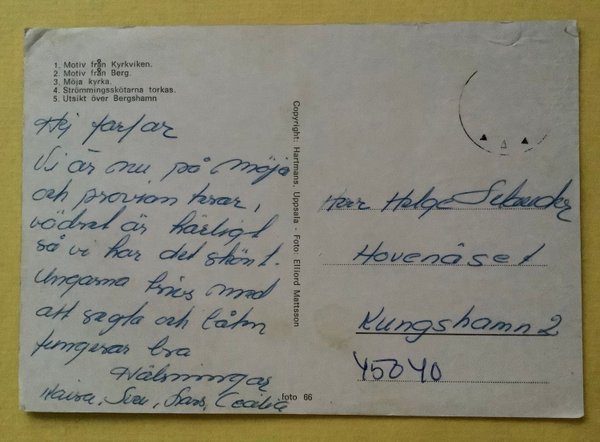 1. Motiv från Kyrkviken.
2. Motiv från Berg.
3. Möja kyrka.
4. Strömmingsskötarna torkas.
5. Utsikt över Bergshamn
Hej farfar
Vi är nu på Möja
och provianterar,
vädret är härligt
så vi har det skönt.
Ungarna trivs med
att segla och båten
fungerar bra
Hälsningar
Sven, Lars, Cecilia
Copyright: Hartmans, Uppsala - Foto: Elliord Mattsson
foto 66
Herr Helge
Hovenäset
Kungshamn 2
45040